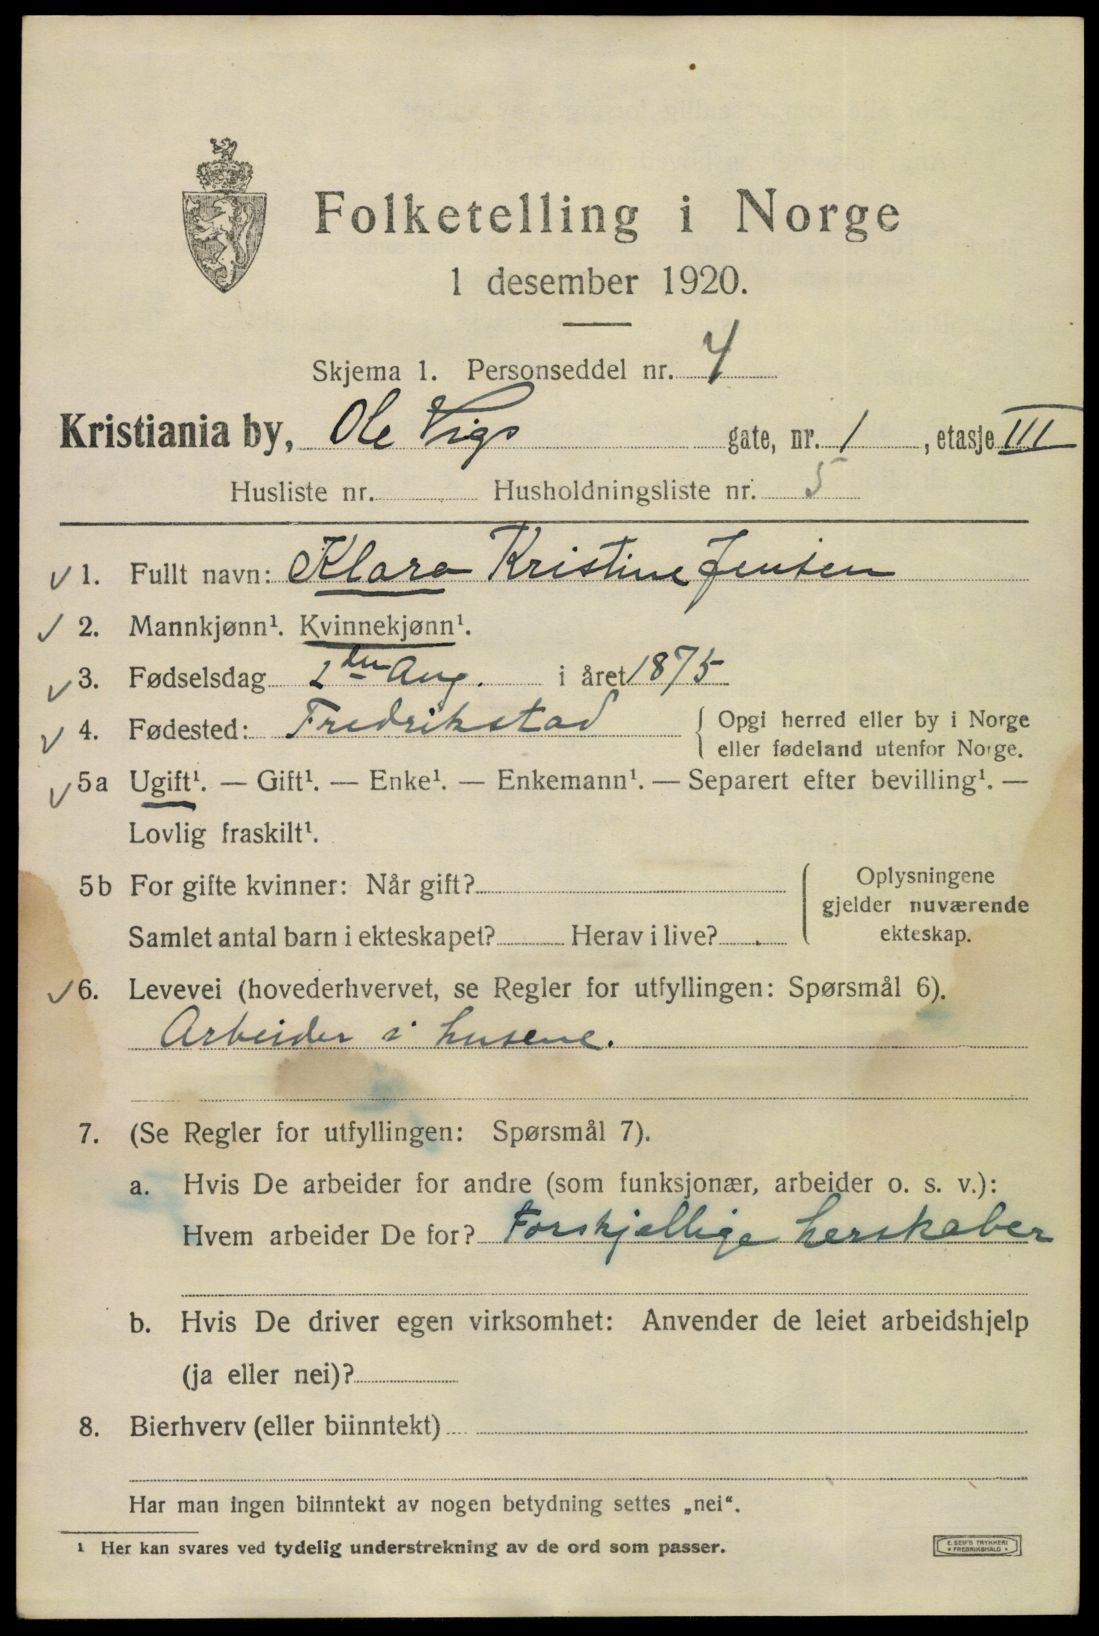 Folketelling i Norge
1 desember 1920.
Skjema 1. Personseddel nr. 4
Kristiania by, Ole Vigs gate, nr. 1, etasje III
Husliste nr. Husholdningsliste nr. 5
✓ 1. Fullt navn: Klara Kristine Jensen
✓ 2. Mannkjønn¹. Kvinnekjønn¹.
✓ 3. Fødselsdag 2den Aug. i året 1875
✓ 4. Fødested: Fredrikstad { Opgi herred eller by i Norge
eller fødeland utenfor Norge.
✓ 5a Ugift¹. — Gift¹. — Enke¹. — Enkemann¹. — Separert efter bevilling¹. —
Lovlig fraskilt¹.
5b For gifte kvinner: Når gift? { Oplysningene
gjelder nuværende
Samlet antal barn i ekteskapet? Herav i live? ekteskap.
✓ 6. Levevei (hovederhvervet, se Regler for utfyllingen: Spørsmål 6).
Arbeider i husene.
7. (Se Regler for utfyllingen: Spørsmål 7).
a. Hvis De arbeider for andre (som funksjonær, arbeider o. s. v.):
Hvem arbeider De for? Forskjellige herskaber
b. Hvis De driver egen virksomhet: Anvender de leiet arbeidshjelp
(ja eller nei)?
8. Bierhverv (eller biinntekt)
Har man ingen biinntekt av nogen betydning settes „nei“.
¹ Her kan svares ved tydelig understrekning av de ord som passer.
E. SEM'S TRYKKERI
• FREDRIKSHALD •